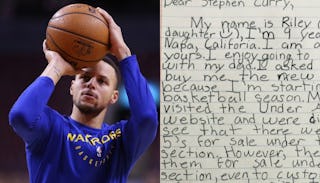 WARRIORS
Dear Stephen Curry,
My name is Riley (
daughter), I'm 9 yea
Napa, Califarita. I am a
yours. I enjoy going to
with my dad. I asked
buy me the new
because I'm starti
basketball season. M
visited the Under A
website and were di
see that there we
5's for sale under
section. However, the
them for sale unde
section, even to custo